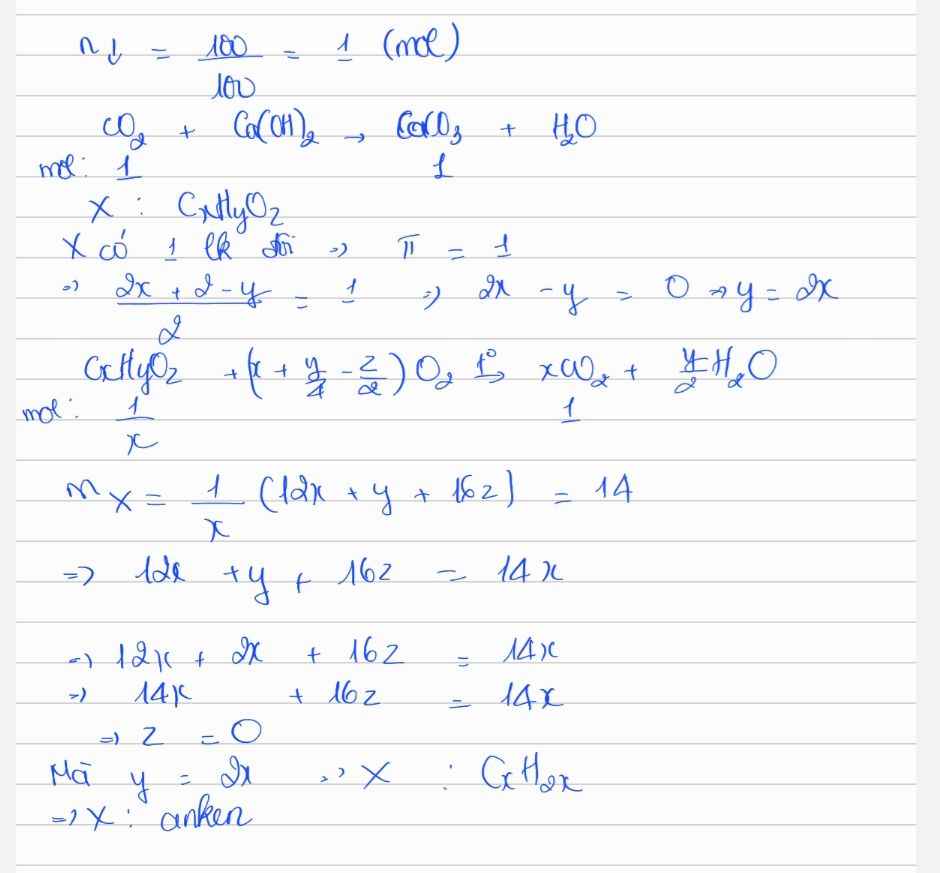 n↓ = 100/100 = 1 (mol)
CO2 + Ca(OH)2 → CaCO3 + H2O
mol: 1 1
X : CxHyOz
X có 1 lk đôi => π = 1
=> (2x + 2 - y)/2 = 1 => 2x - y = 0 => y = 2x
CxHyOz + (x + y/4 - z/2) O2 t°→ xCO2 + y/2 H2O
mol: 1/x 1
mX = 1/x (12x + y + 16z) = 14
=> 12x + y + 16z = 14x
=> 12x + 2x + 16z = 14x
=> 14x + 16z = 14x
=> z = 0
Mà y = 2x => X : CxH2x
=> X : anken